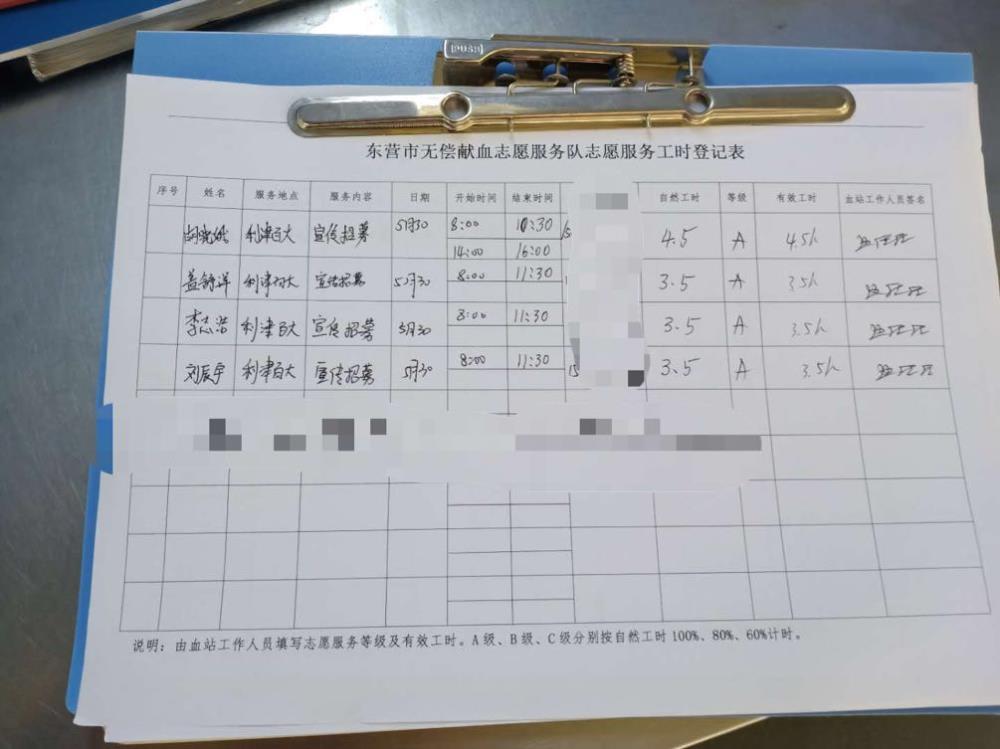 东营市无偿献血志愿服务队志愿服务工时登记表
序号 姓名 服务地点 服务内容 日期 开始时间 结束时间 自然工时 等级 有效工时 血站工作人员签名
利津百大 宣传招募 5月30 8:00 10:30 4.5 A 4.5h
14:00 16:00
利津百大 宣传招募 5月30 8:00 11:30 3.5 A 3.5h
李志浩 利津百大 宣传招募 5月30 8:00 11:30 3.5 A 3.5h
刘辰宇 利津百大 宣传招募 5月30 8:00 11:30 3.5 A 3.5h
说明：由血站工作人员填写志愿服务等级及有效工时。A级、B级、C级分别按自然工时100%、80%、60%计时。